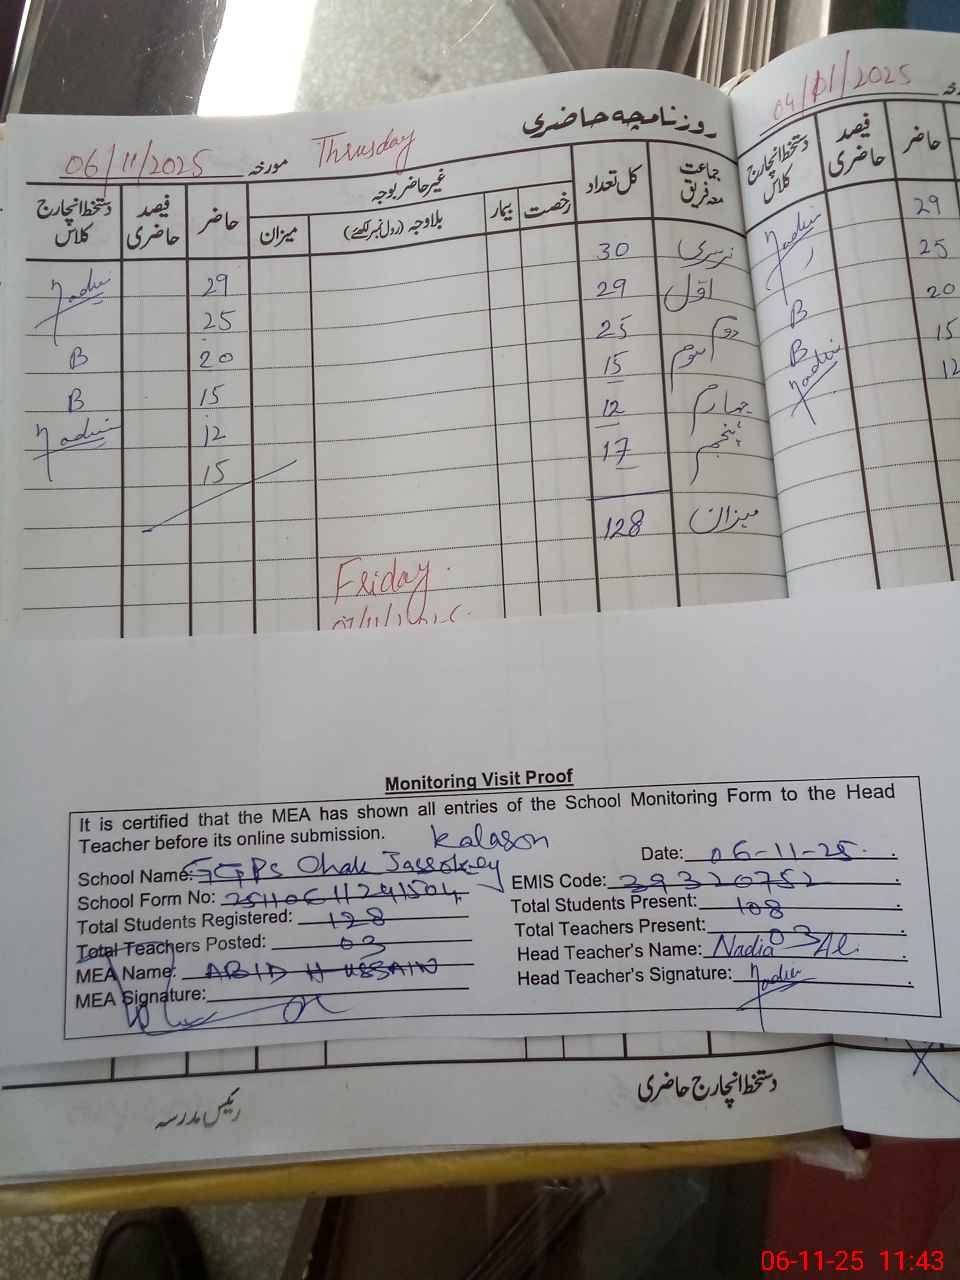 روزنامچہ حاضری
06/11/2025 مورخہ Thrusday
جماعت معہ فریق کل تعداد غیر حاضر بوجہ حاضر فیصد حاضری دستخط انچارج کلاس
رخصت بیمار بلاوجہ (رول نمبر لکھئے) میزان
نرسری 30 29 Nadia
اوّل 29 25
دوم 25 20 B
سوم 15 15 B
چہارم 12 12 Nadia
پنجم 17 15
میزان 128
Friday
04/01/2025
حاضر فیصد حاضری دستخط انچارج کلاس
29 Nadia
25
20 B
15 B
12 Nadia
Monitoring Visit Proof
It is certified that the MEA has shown all entries of the School Monitoring Form to the Head
Teacher before its online submission.
Kalason
School Name: GGPS Chak Jassokey
Date: 06-11-25
School Form No:
EMIS Code: 39320752
Total Students Registered: 128
Total Students Present: 108
Total Teachers Posted: 03
Total Teachers Present: 03
MEA Name: ABID HUSSAIN
Head Teacher's Name: Nadia
MEA Signature:
Head Teacher's Signature: Nadia
دستخط انچارج حاضری
رئیس مدرسہ
06-11-25 11:43